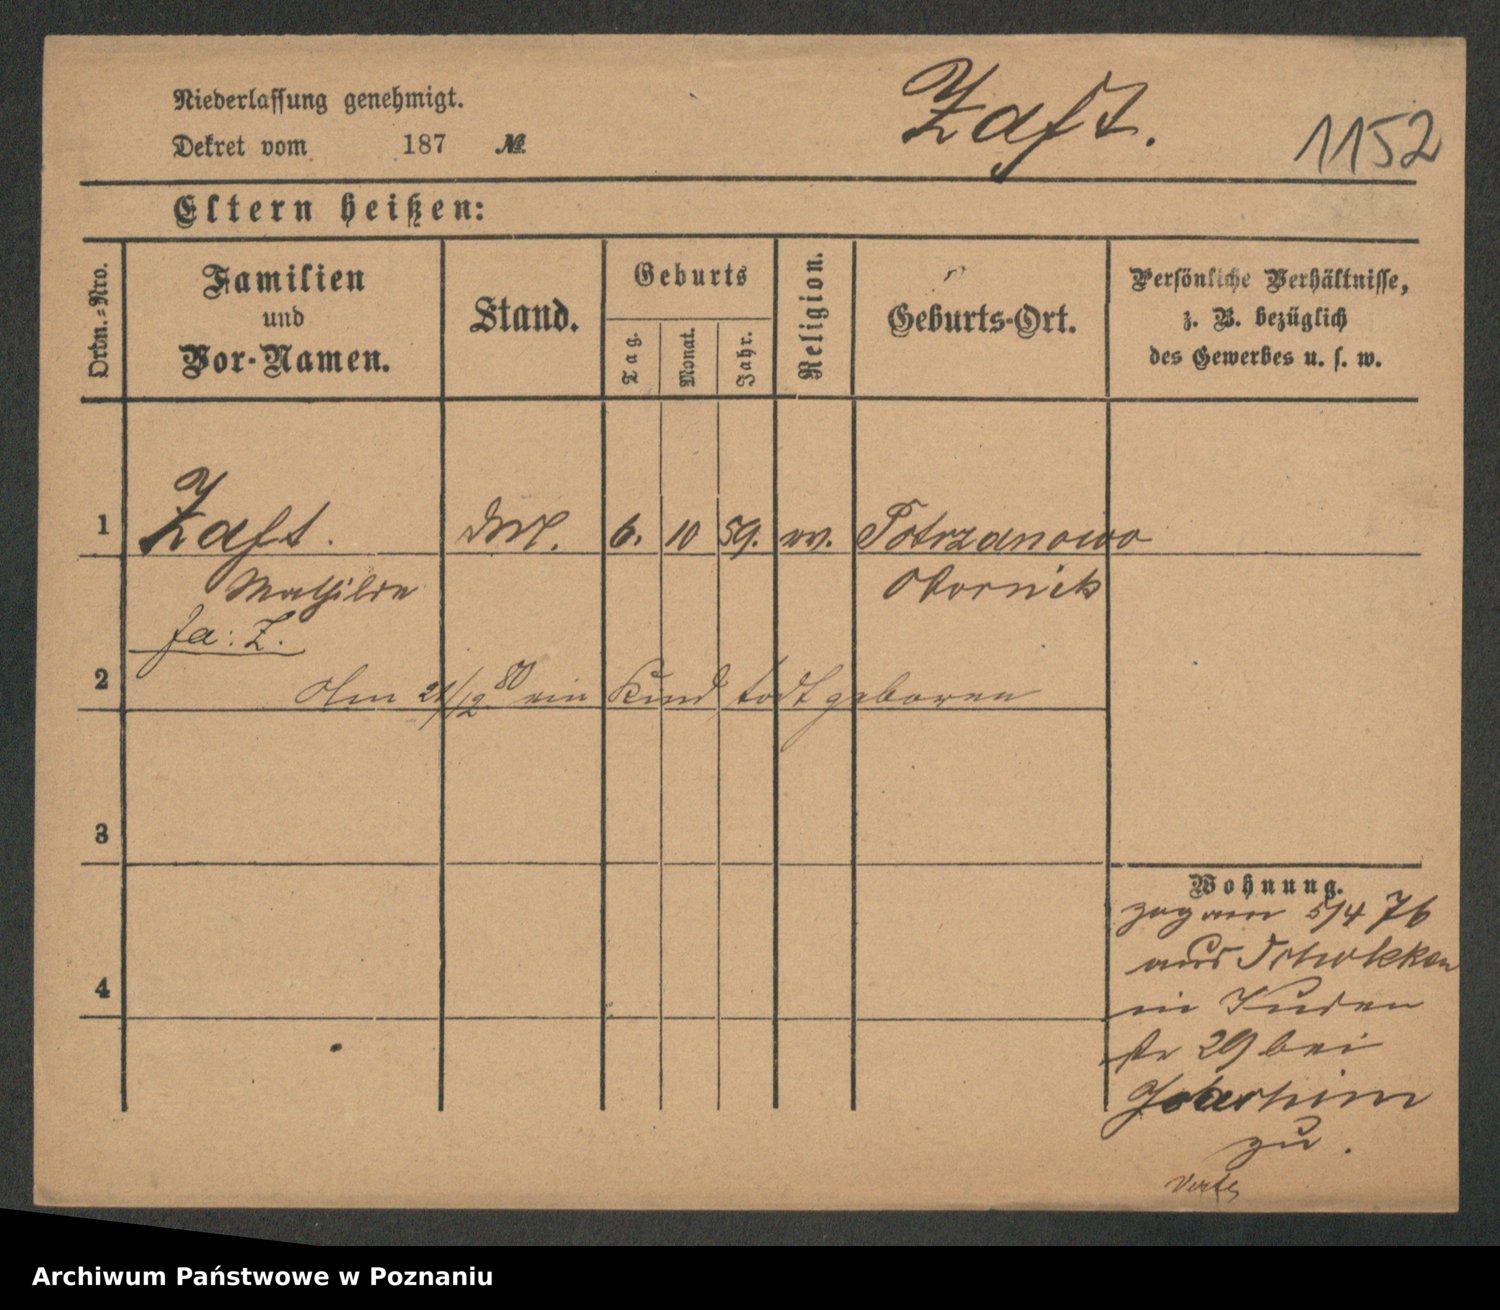 Niederlassung genehmigt.
Dekret vom 187 №
Zaft.
1152
Eltern heißen:
Ordn.-Nro.
Familien
und
Vor-Namen.
Stand.
Geburts
Tag.
Monat.
Jahr.
Religion.
Geburts-Ort.
Persönliche Verhältnisse,
z. B. bezüglich
des Gewerbes u. s. w.
1 Zaft. 6. 10 59. Potrzanowo
Mathilde Obornik
fa: Z.
2 Am 21/12 80 ein Kind todt geboren
3
4
Wohnung.
zog am 5/4 76
aus Schokken
in Juden
str 29 bei
Joachim
zu.
Archiwum Państwowe w Poznaniu